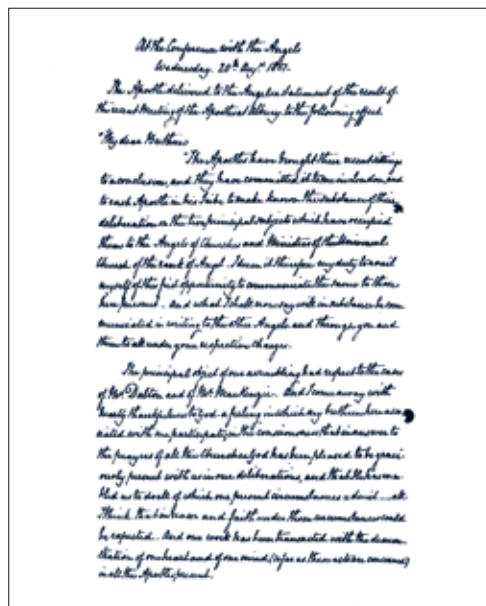 At the Conference with the Angels
Wednesday. 20th Augt. 1851.
The Apostle delivered to the Angels a statement of the result of
the recent Meeting of the Apostles at Albury to the following effect
"My dear Brethren
"The Apostles have brought their recent sittings
to a conclusion, and they have committed it to me in London, and
to each Apostle in his Tribe to make known the substance of their
deliberation on the two principal subjects which have occupied
them to the Angels of Churches and Ministers of the Universal
Church of the rank of Angel. I deem it therefore my duty to avail
myself of this first opportunity to communicate the same to those
here present. And what I shall now say will in substance be com
municated in writing to the other Angels and through you and
them to all under your respective charges.
The principal object of our assembling had respect to the cases
of Mr. Dalton and of Mr. MacKenzie. And I come away with
hearty thankfulness to God a feeling in which my brethren here asso
ciated with me participate, in the consciousness that in answer to
the prayers of all the Churches God has been pleased to be graci
ously present with us in our deliberations, and that He has ena
bled us to do all of which our present circumstances admit — all
I think that his and faith under those circumstances could
be expected. And our work has been transacted with the demon
stration of one heart and of one mind (so far as these acts are concerned)
in all the Apostles present.